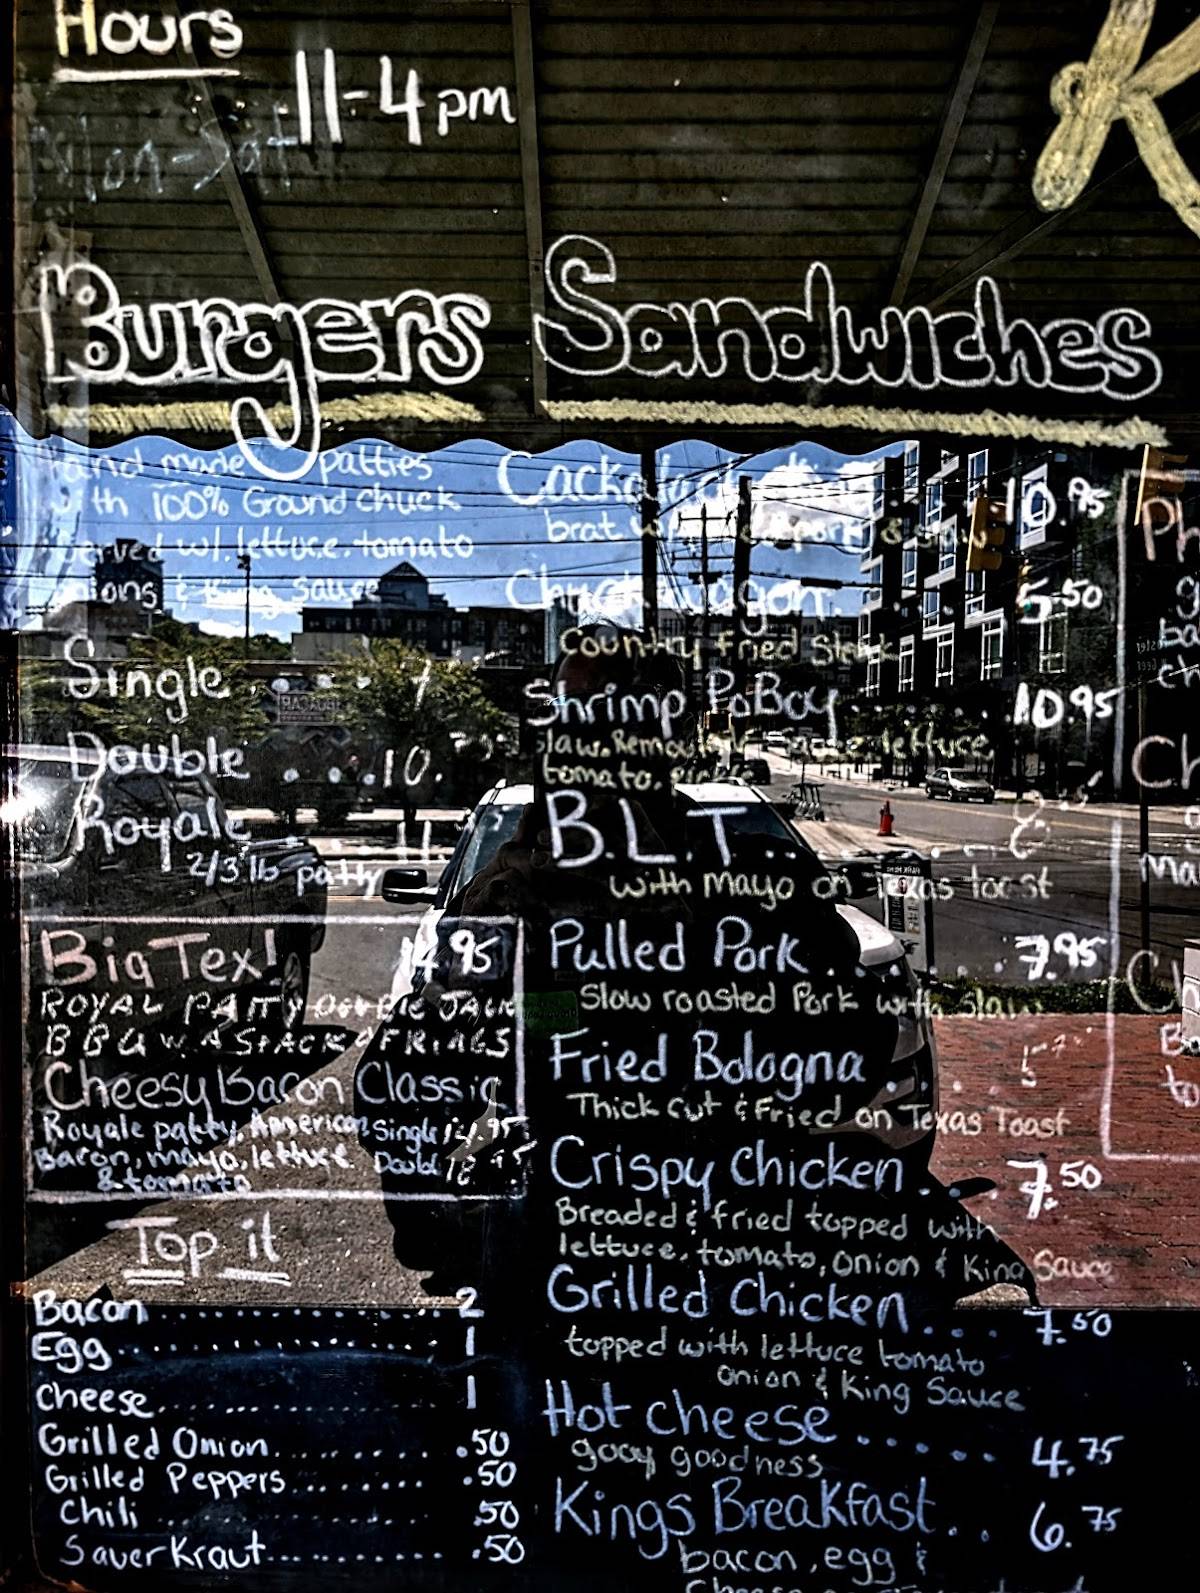 Hours
11-4pm
Mon-Sat
K
Burgers
Hand made patties
with 100% Ground Chuck
served w/. lettuce. tomato
onions & King Sauce
Single . . . . 7
Double . . . . 10.
Royale . . . . 11.
2/3 lb patty
Big Tex! 14.95
ROYAL PATTY DOUBLE JACK
BBQ W. A STACK OF RINGS
Cheesy Bacon Classic
Royale patty, American Single
Bacon, mayo, lettuce Double
& tomato
Top it
Bacon.................... 2
Egg...................... 1
cheese................... 1
Grilled Onion............ .50
Grilled Peppers.......... .50
Chili ................... .50
SauerKraut............... .50
Sandwiches
10.95
brat
Chuckwagon . . . . 5.50
Country Fried Steak
Shrimp PoBoy . . . . 10.95
Slaw, Remoulade Sauce lettuce,
tomato, pickle
B.L.T . . . .
with mayo on Texas toast
Pulled Pork . . . . 7.95
Slow roasted Pork with slaw
Fried Bologna . . . .
Thick cut & Fried on Texas Toast
Crispy Chicken . . . 7.50
Breaded & fried topped with
lettuce, tomato, onion & King Sauce
Grilled Chicken . . . 7.50
topped with lettuce tomato
onion & King Sauce
Hot cheese . . . . . 4.75
gooy goodness
Kings Breakfast . . 6.75
bacon, egg &